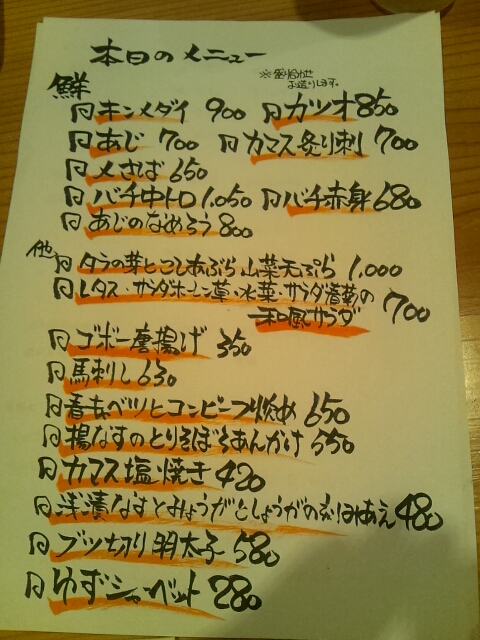 本日のメニュー
※盛り合わせ
お造りします。
鮮
キンメダイ 900 カツオ 850
あじ 700 カマス炙り刺 700
〆さば 650
バチ中トロ 1,050 バチ赤身 680
あじのなめろう 800
他
タラの芽とこしあぶら 山菜天ぷら 1,000
レタス・サラダホーレン草・水菜・サラダ春菊の
和風サラダ 700
ゴボー唐揚げ 350
馬刺し 630
春キャベツとコンビーフ炒め 650
揚なすのとりそぼろあんかけ 550
カマス塩焼き 420
浅漬なすとみょうがとしょうがの 480
ブツ切り明太子 580
ゆずシャーベット 280